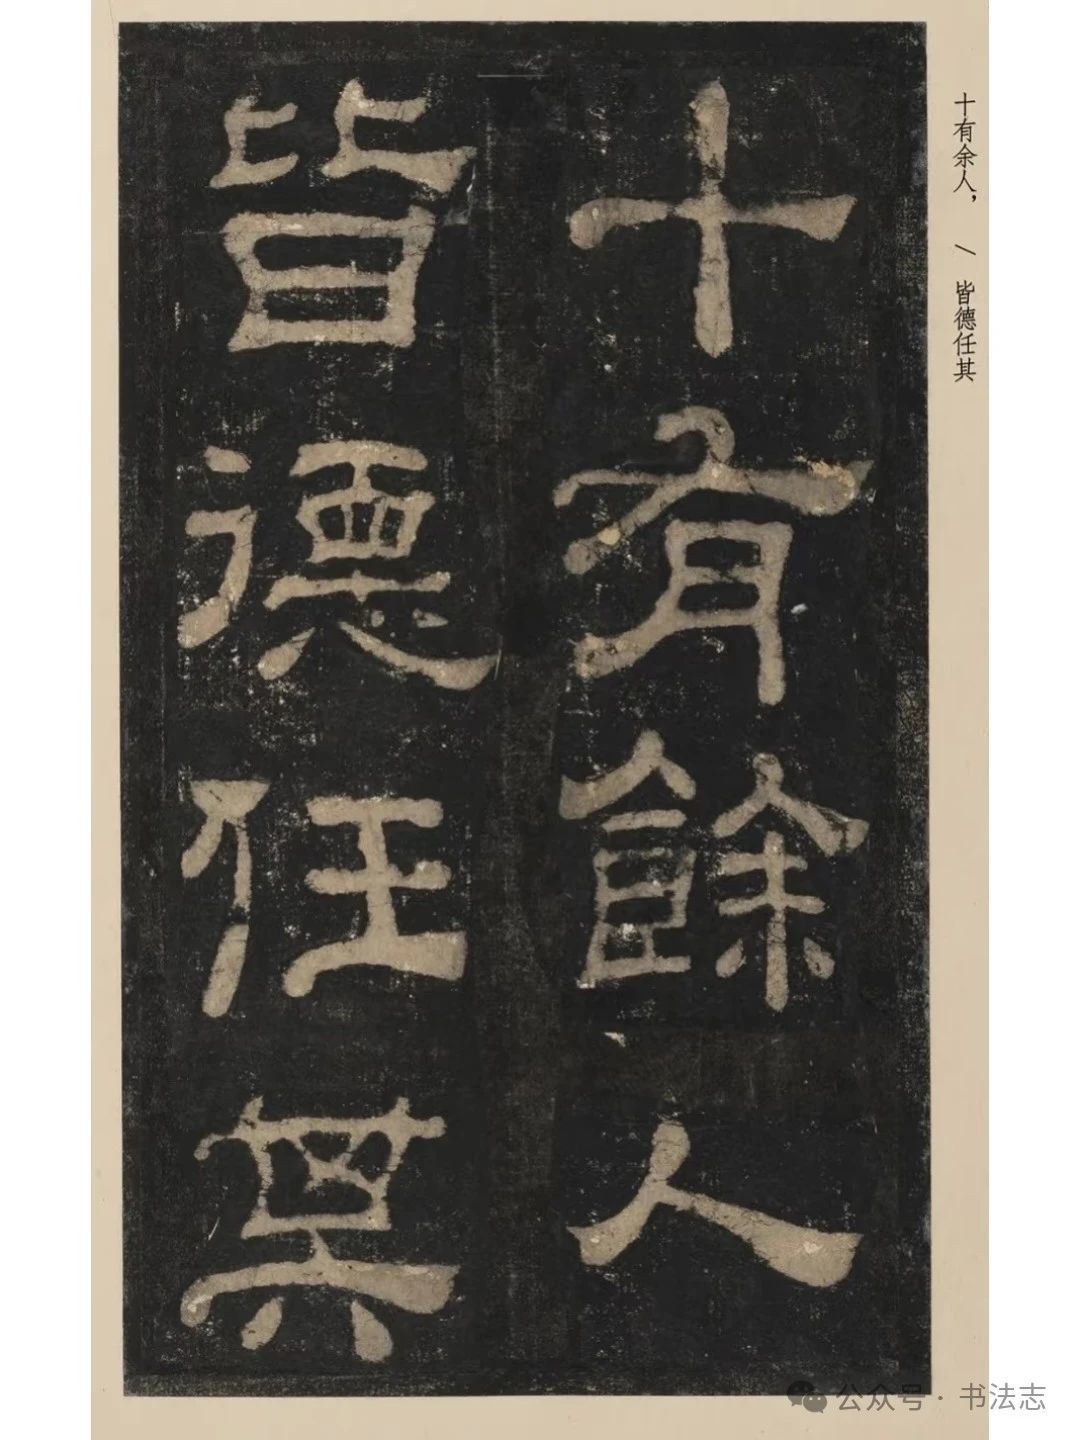 十有餘人
皆德任其
十有余人，／皆德任其
公众号·书法志